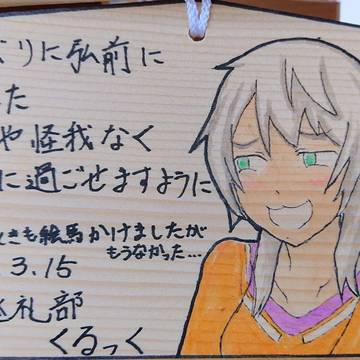 ぶりに弘前に
た
や怪我なく
に過ごせますように
ときも絵馬かけましたが
もうなかった…
.3.15
礼部
くるっく